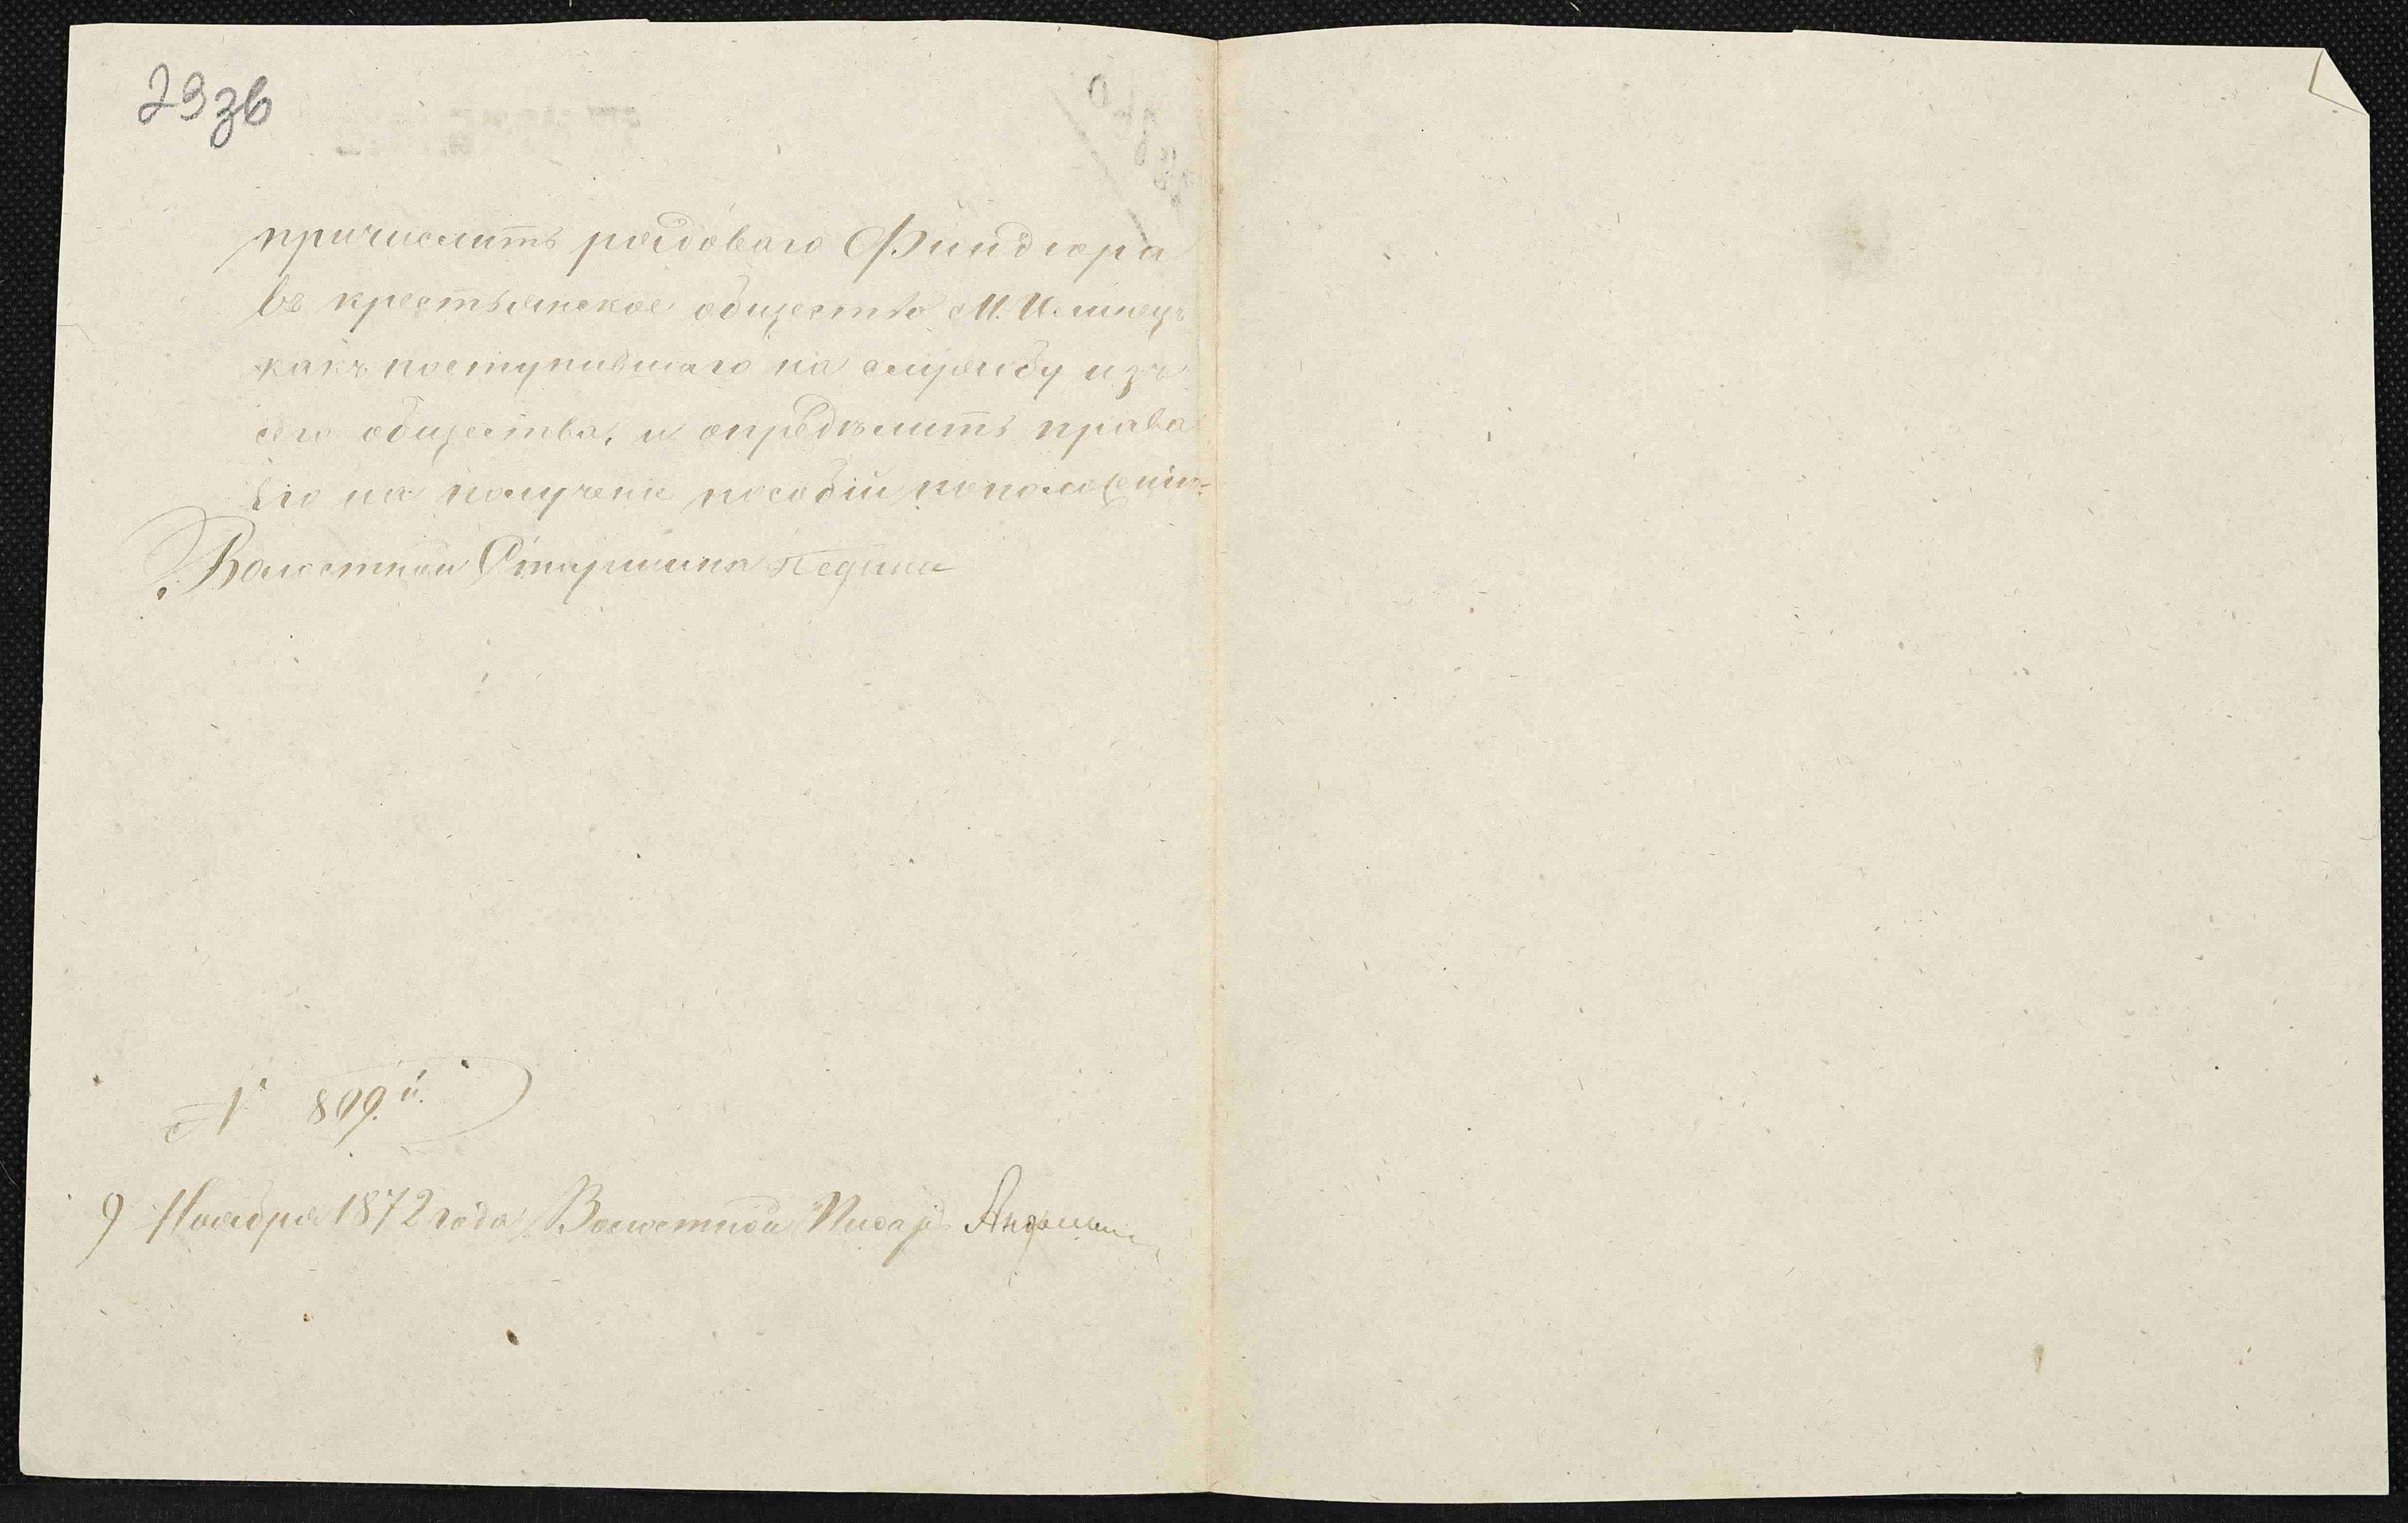 29 зв
причислить рядоваго Финдюра
въ крестьянское общество М.
какъ поступившаго на службу изъ
сего общества, и опредѣлить права
его на получение пособий по положенію.
Волостной Старшина
N 809.й.
9 Ноября 1872 года Волостной Писарь